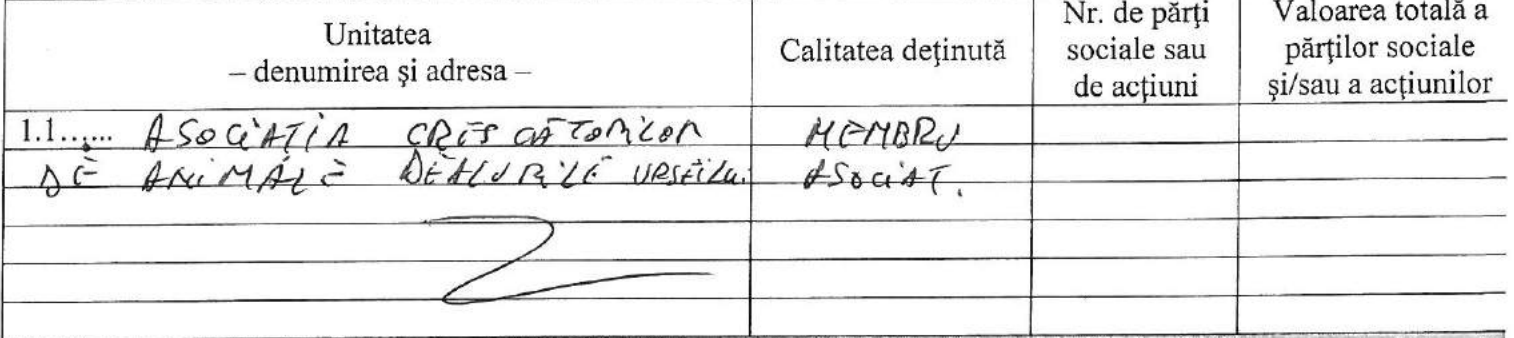 Unitatea
– denumirea și adresa –
Calitatea deținută
Nr. de părți
sociale sau
de acțiuni
Valoarea totală a
părților sociale
și/sau a acțiunilor
1.1...... ASOCIAȚIA CRESCĂTORILOR MEMBRU
DE ANIMALE DEALURILE URSEILU. ASOCIAT.